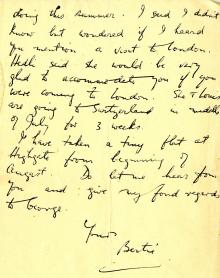 doing this summer. I said I didn't
know but wondered if I heard
you mention a visit to London.
said she would be very
glad to accommodate you if you
were coming to London. She &
are going to Switzerland in middle
of July for 3 weeks.
I have taken a tiny flat at
Highgate from beginning of
August. Do let me hear from
you and give my fond regards
to George.
Yours
Bertie